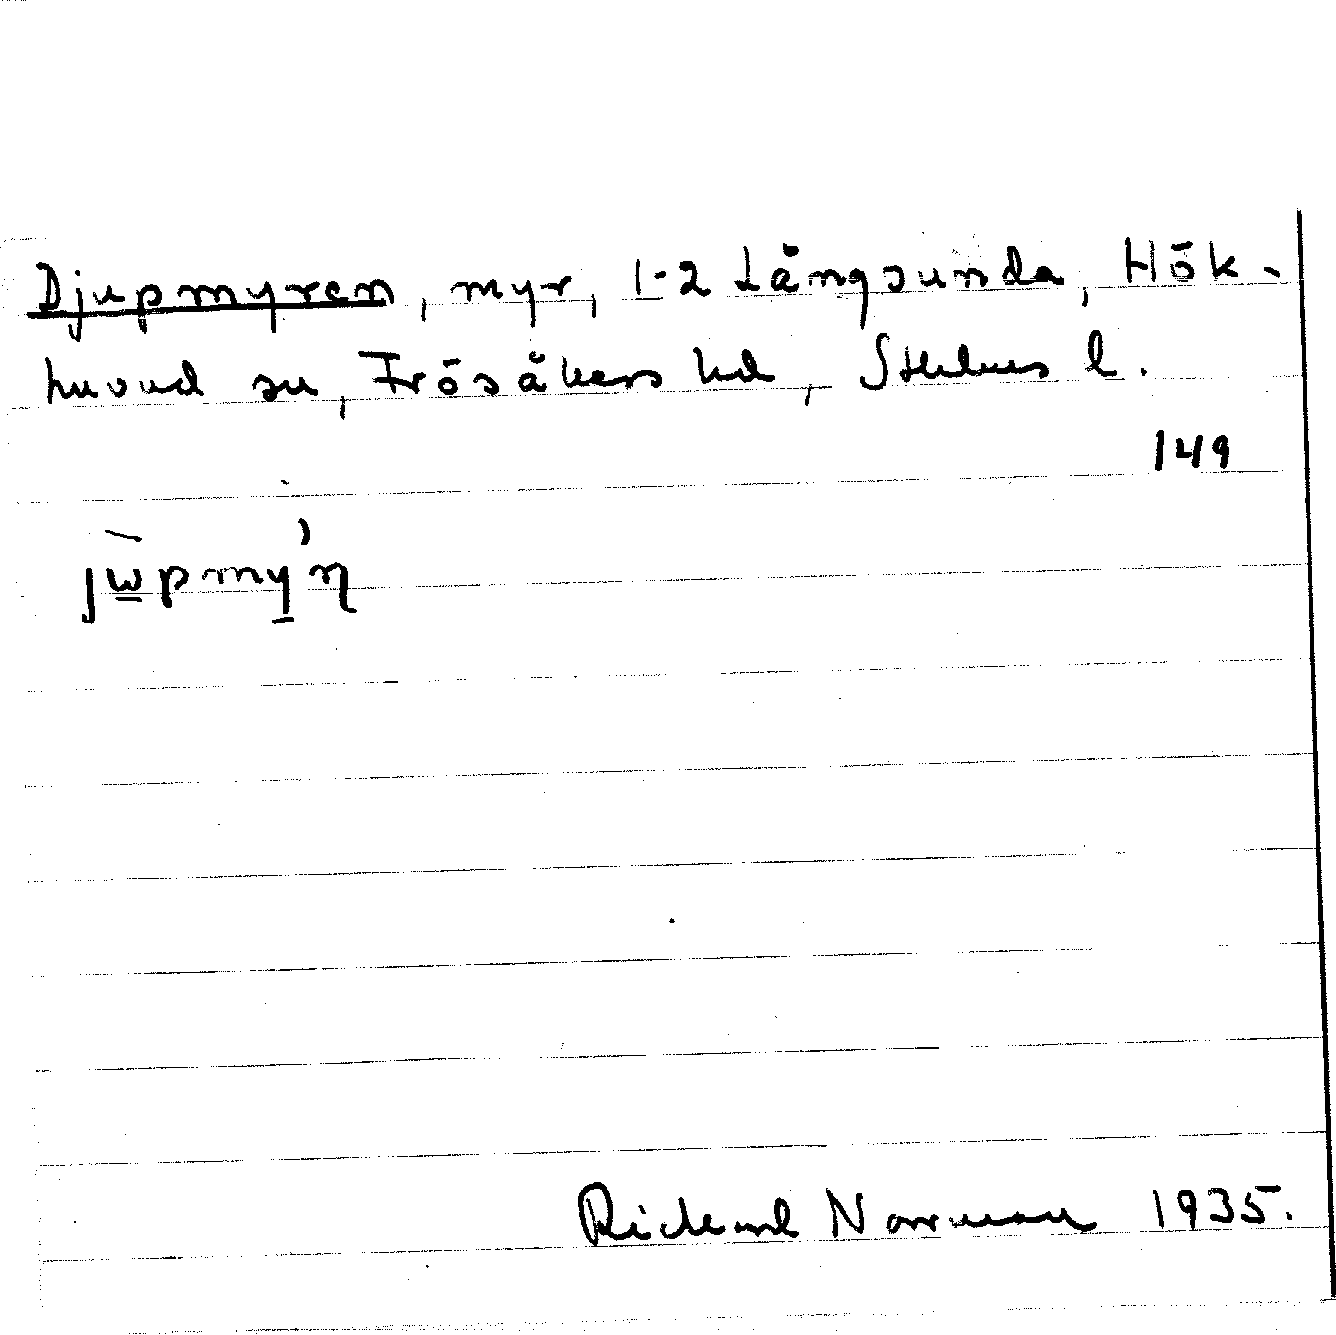 Djupmyren, myr, 1-2 Långsunda, Hök-
huvud sn, Frösåkers hd, Sthlms l.
149
jɯ̀pmy'ɳ
Richard Norrman 1935.